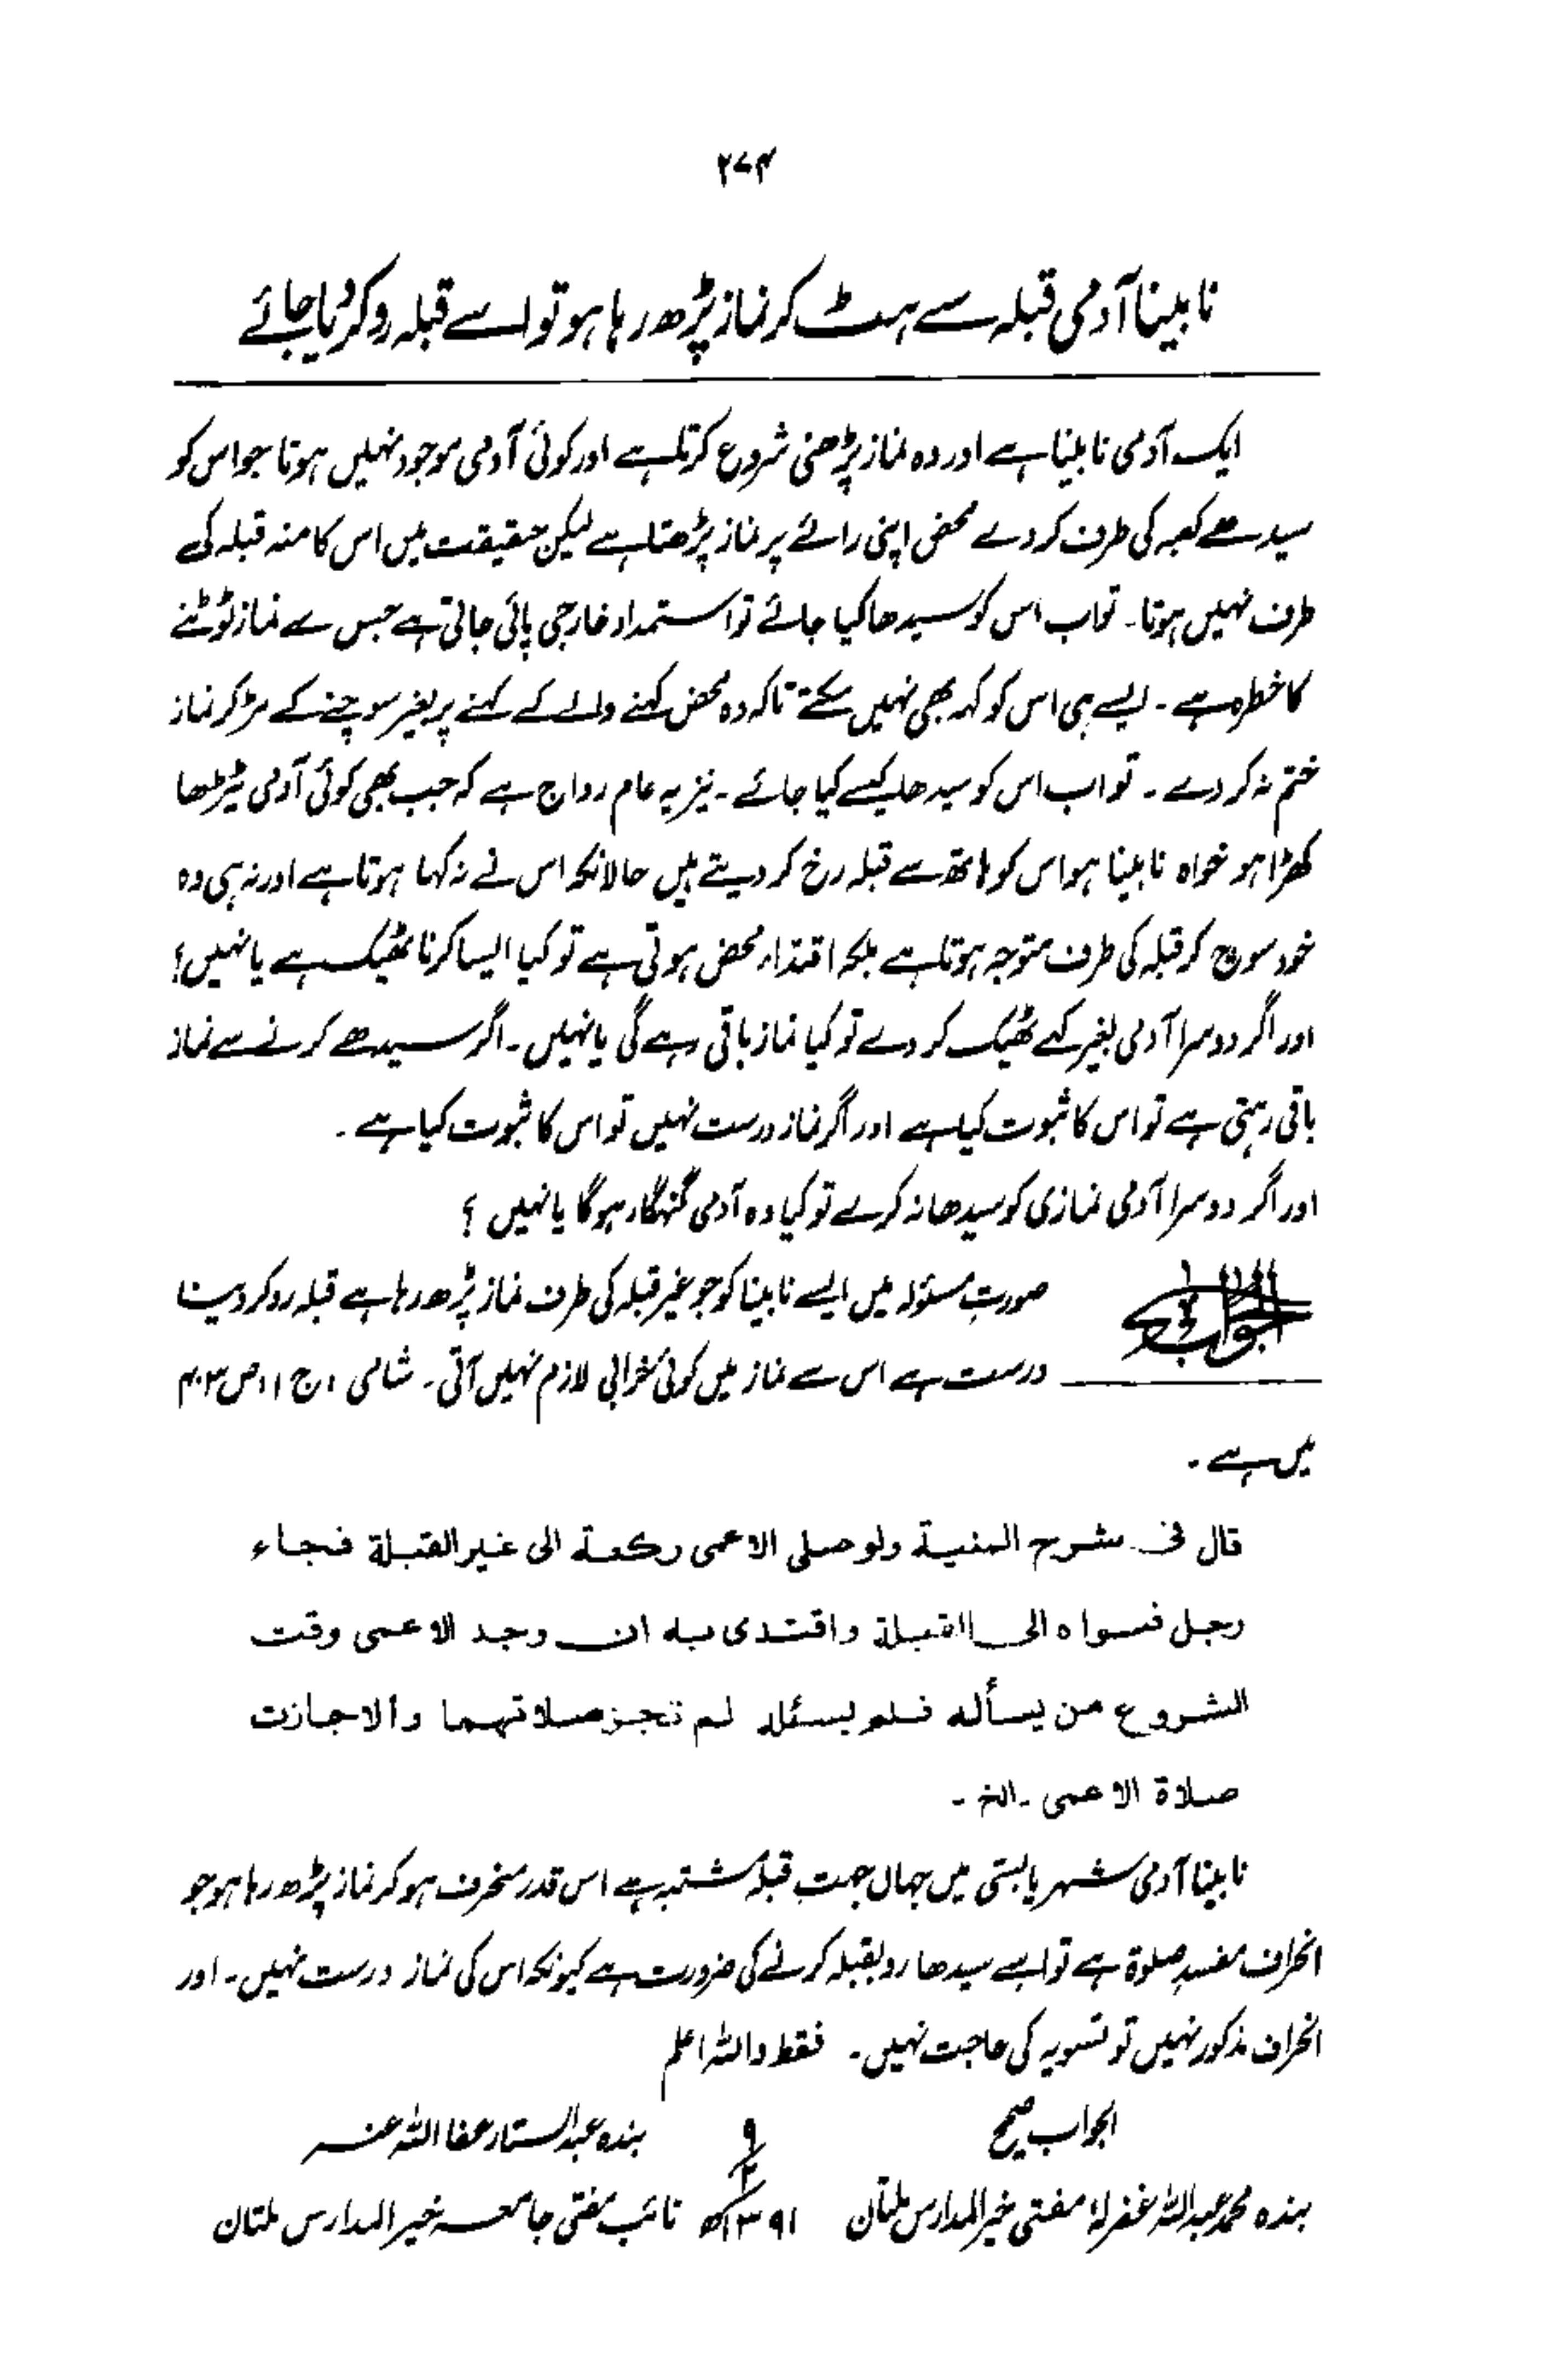 ۲۷۴
نابینا آدمی قبلہ سے ہٹ کر نماز پڑھ رہا ہو تو اسے قبلہ رو کر دیا جائے
ایک آدمی نابینا ہے اور وہ نماز پڑھنی شروع کرتا ہے اور کوئی آدمی موجود نہیں ہوتا جو اس کو
سیدھے کعبہ کی طرف کر دے محض اپنی رائے پر نماز پڑھتا ہے لیکن حقیقت میں اس کا منہ قبلہ کی
طرف نہیں ہوتا۔ تو اب اس کو سیدھا کیا جائے تو استمداد خارجی پائی جاتی ہے جس سے نماز ٹوٹنے
کا خطرہ ہے۔ ایسے ہی اس کو کہہ بھی نہیں سکتے تاکہ وہ محض کہنے والے کے کہنے پر بغیر سوچنے کے مڑ کر نماز
ختم نہ کر دے۔ تو اب اس کو سیدھا کیسے کیا جائے۔ نیز یہ عام رواج ہے کہ جب بھی کوئی آدمی ٹیڑھا
کھڑا ہو خواہ نابینا ہو اس کو ہاتھ سے قبلہ رخ کر دیتے ہیں حالانکہ اس نے نہ کہا ہوتا ہے اور نہ ہی وہ
خود سوچ کر قبلہ کی طرف متوجہ ہوتا ہے بلکہ اقتداء محض ہوتی ہے تو کیا ایسا کرنا ٹھیک ہے یا نہیں؟
اور اگر دوسرا آدمی بغیر کہے ٹھیک کر دے تو کیا نماز باقی رہے گی یا نہیں۔ اگر سیدھے کرنے سے نماز
باقی رہتی ہے تو اس کا ثبوت کیا ہے اور اگر نماز درست نہیں تو اس کا ثبوت کیا ہے۔
اور اگر دوسرا آدمی نمازی کو سیدھا نہ کرے تو کیا وہ آدمی گنہگار ہوگا یا نہیں؟
الجواب صورتِ مسئولہ میں ایسے نابینا کو جو غیر قبلہ کی طرف نماز پڑھ رہا ہے قبلہ رو کر دینا
درست ہے اس سے نماز میں کوئی خرابی لازم نہیں آتی۔ شامی، ج ۱، ص ۴۰۳
میں ہے۔
قال فی شرح المنیة ولو صلی الاعمی رکعة الی غیر القبلة فجاء
رجل فسواہ الی القبلة واقتدی بہ ان وجد الاعمی وقت
الشروع من یسألہ فلم یسئلہ لم تجز صلاتہما والا جازت
صلاة الاعمی۔ الخ۔
نابینا آدمی شہر یا بستی میں جہاں جہتِ قبلہ مشتبہ ہے اس قدر منحرف ہو کر نماز پڑھ رہا ہو جو
انحراف مفسدِ صلوة ہے تو اسے سیدھا رو بقبلہ کرنے کی ضرورت ہے کیونکہ اس کی نماز درست نہیں۔ اور
انحراف مذکور نہیں تو تسویہ کی حاجت نہیں۔ فقط واللہ اعلم
الجواب صحیح ۹ بندہ عبدالستار عفا اللہ عنہ
بندہ محمد عبداللہ غفر لہٗ مفتی خیر المدارس ملتان ۱۳۹۱ھ نائب مفتی جامعہ خیر المدارس ملتان